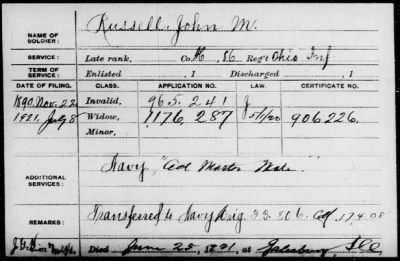 NAME OF SOLDIER: Russell, John M.
SERVICE: Late rank, Co. K, 86 Reg't Ohio Inf
TERM OF SERVICE: Enlisted , 1 Discharged , 1
DATE OF FILING. CLASS. APPLICATION NO. LAW. CERTIFICATE NO.
1890, Nov. 22 Invalid, 965.241 J
1921, July 8 Widow, 1176,287 5/1/20 906226.
Minor,
ADDITIONAL SERVICES: Navy, "Act Master Mate"
REMARKS: Transferred to Navy Orig. 33.806. Ctf. 17408
Died June 25, 1921, at Galesburg, Ill